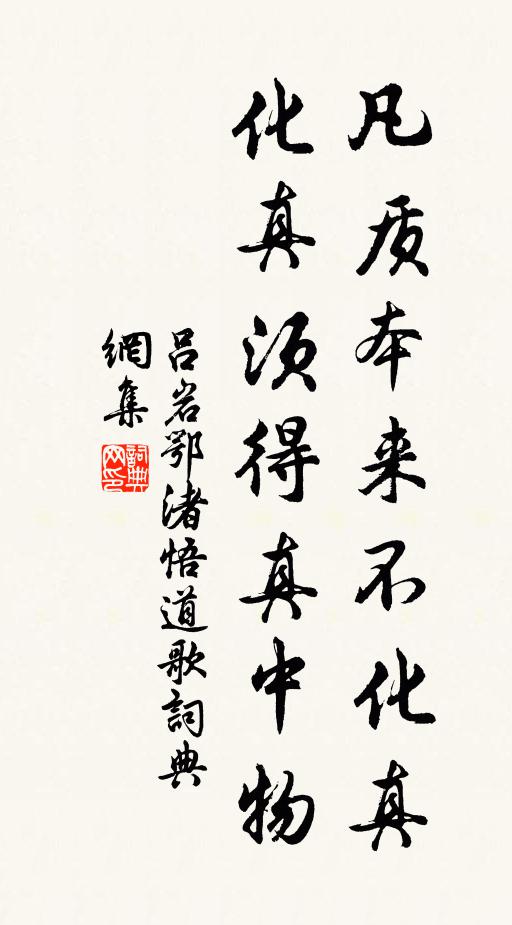 凡质本来不化真
化真须得真中物
吕岩鄂渚悟道歌詞典
網集
詞典網印